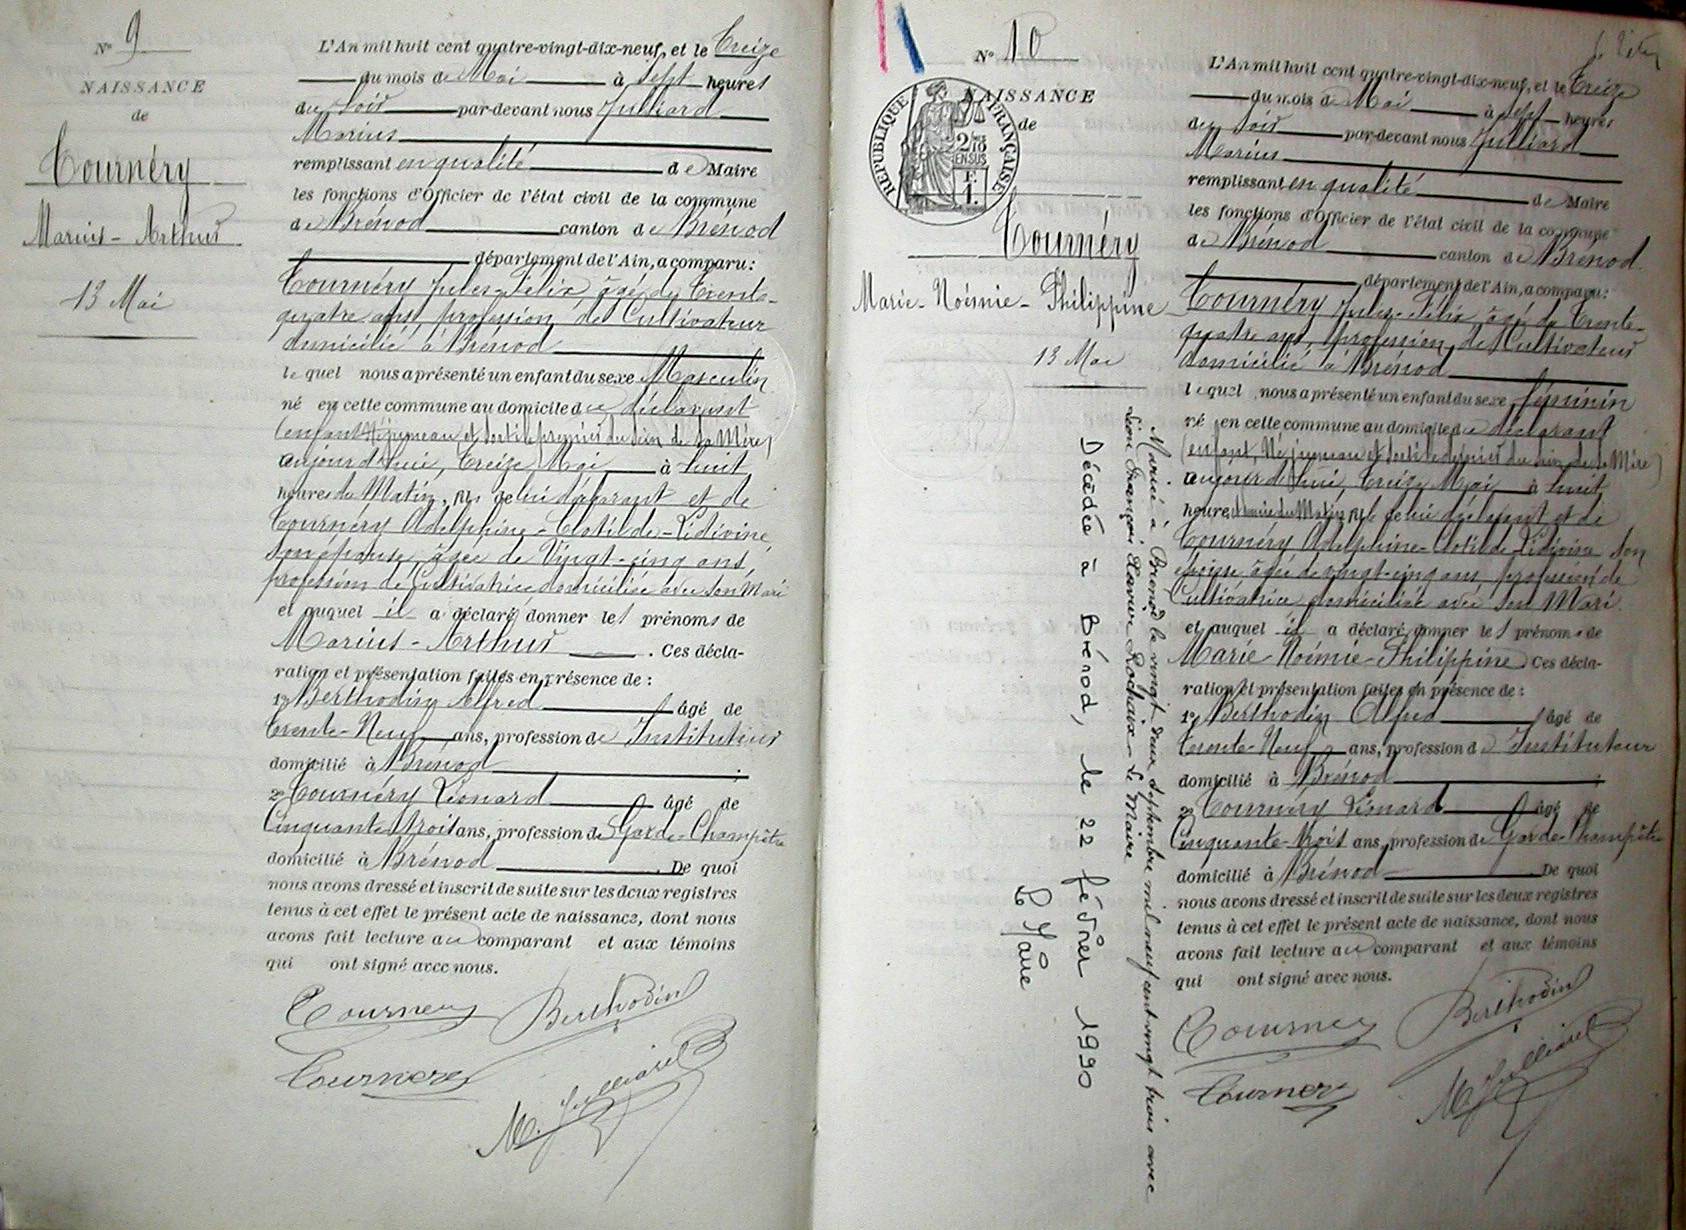 N° 9
NAISSANCE
de
Tournéry
Marius-Arthur
13 Mai
L'An mil huit cent quatre-vingt-dix-neuf, et le Treize
du mois de Mai à Sept heures
du Soir par-devant nous Julliard
Marius
remplissant en qualité de Maire
les fonctions d'Officier de l'état civil de la commune
de Brénod canton de Brénod
département de l'Ain, a comparu :
Tournéry Jules-Félix âgé de Trente-
quatre ans, profession de Cultivateur
domicilié à Brénod
le quel nous a présenté un enfant du sexe Masculin
né en cette commune au domicile du déclarant
(enfant Né jumeau et sorti le premier du sein de sa Mère)
aujourd'hui, Treize Mai à huit
heures du Matin, fils de lui déclarant et de
Tournéry Adelphine-Clotilde-Lidivine
son épouse, âgée de Vingt-cinq ans,
profession de Cultivatrice domiciliée avec son Mari
et auquel il a déclaré donner les prénoms de
Marius-Arthur . Ces décla-
ration et présentation faites en présence de :
1° Berthodin Alfred âgé de
trente-Neuf ans, profession de Instituteur
domicilié à Brénod ;
2° Tournéry Léonard âgé de
Cinquante-trois ans, profession de Garde-Champêtre
domicilié à Brénod . De quoi
nous avons dressé et inscrit de suite sur les deux registres
tenus à cet effet le présent acte de naissance, dont nous
avons fait lecture au comparant et aux témoins
qui ont signé avec nous.
Tournery Berthodin
Tournery
M. Julliard
N° 10
NAISSANCE
de
RÉPUBLIQUE FRANÇAISE
Tournéry
Marie-Noémie-Philippine
13 Mai
Mariée à Brénod le vingt deux septembre mil neuf cent vingt trois avec
Léon François Xavier Rochaix - Le Maire
Décédée à Brénod, le 22 février 1990
Le Maire
L'An mil huit cent quatre-vingt-dix-neuf, et le Treize
du mois de Mai à Sept heures
du Soir par-devant nous Julliard
Marius
remplissant en qualité de Maire
les fonctions d'Officier de l'état civil de la commune
de Brénod canton de Brénod
département de l'Ain, a comparu :
Tournéry Jules-Félix âgé de Trente-
quatre ans, profession de Cultivateur
domicilié à Brénod
le quel nous a présenté un enfant du sexe féminin
né en cette commune au domicile du déclarant
(enfant, Né jumeau et sorti le dernier du sein de sa Mère)
aujourd'hui, Treize Mai à huit
heures du Matin, de lui déclarant et de
Tournéry Adelphine-Clotilde Lidivine son
épouse âgée de vingt-cinq ans, profession de
Cultivatrice domiciliée avec son Mari.
et auquel il a déclaré donner les prénoms de
Marie-Noémie-Philippine. Ces décla-
ration et présentation faites en présence de :
1° Berthodin Alfred âgé de
trente-Neuf ans, profession de Instituteur
domicilié à Brénod ;
2° Tournéry Léonard âgé de
Cinquante-trois ans, profession de Garde-Champêtre
domicilié à Brénod De quoi
nous avons dressé et inscrit de suite sur les deux registres
tenus à cet effet le présent acte de naissance, dont nous
avons fait lecture au comparant et aux témoins
qui ont signé avec nous.
Tournery Berthodin
Tournery
M. Julliard